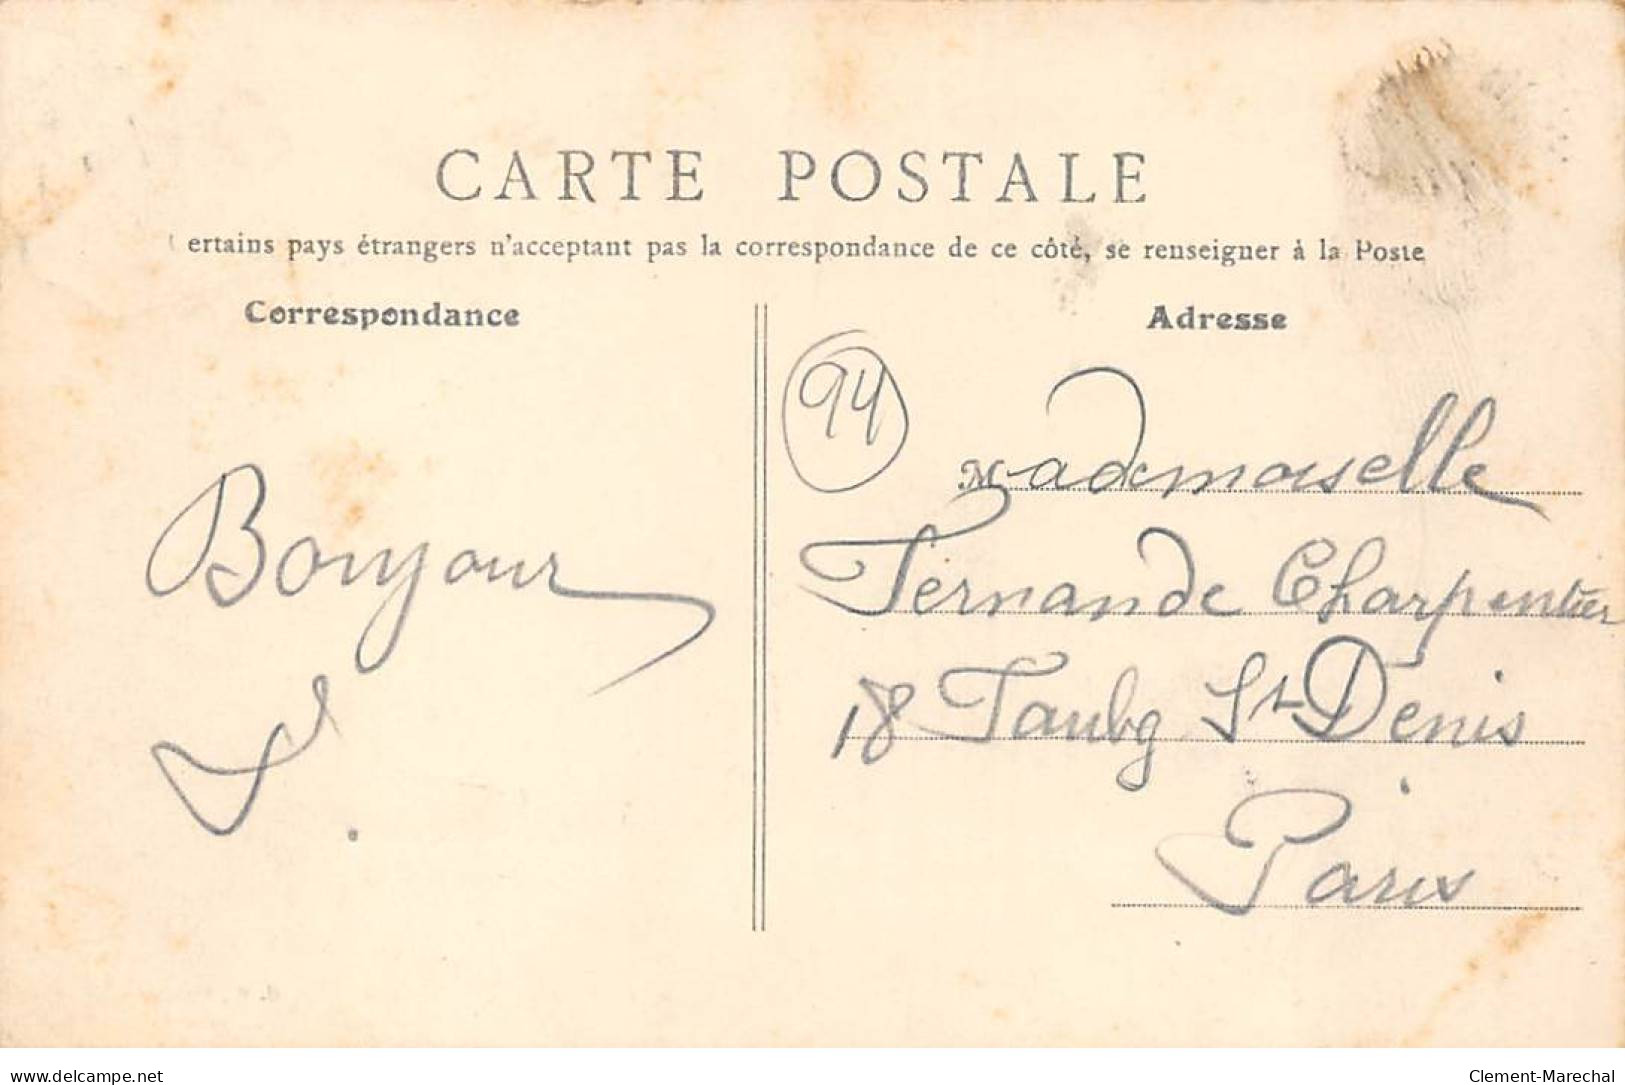 CARTE POSTALE
ertains pays étrangers n'acceptant pas la correspondance de ce côté, se renseigner à la Poste
Correspondance
Bonjour
Adresse
94
Mademoiselle
Fernande Charpentier
18 Faubg St Denis
Paris
www.delcampe.net
Clement-Marechal